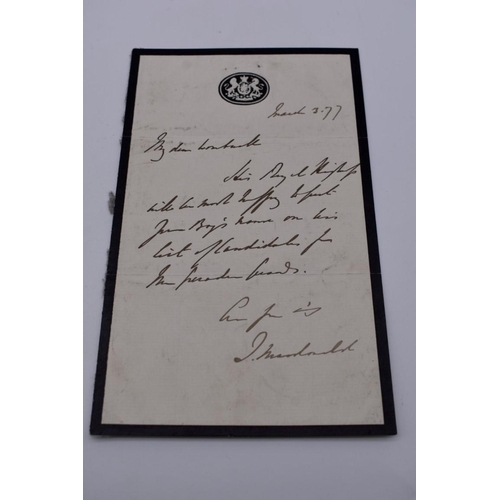 March 3. 77
My dear
His Royal Highness
will be most happy to put
your Boy's name on his
list of Candidates for
the Grenadier Guards.
J. Macdonald